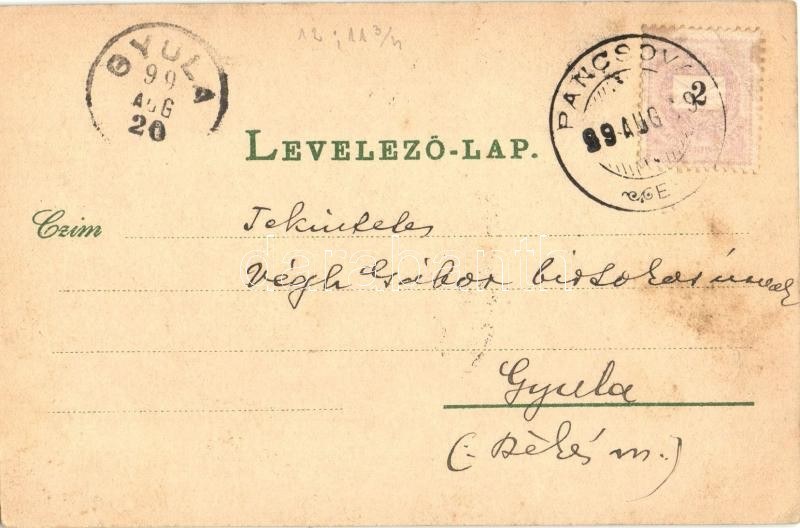 12; 11 3/4
GYULA
99
AUG
20
PANCSOVA
99 AUG 19
E
2
LEVELEZŐ-LAP.
Czim
Tekintetes
Végh Gábor birtokos úrnak
Gyula
(:Békés m.)